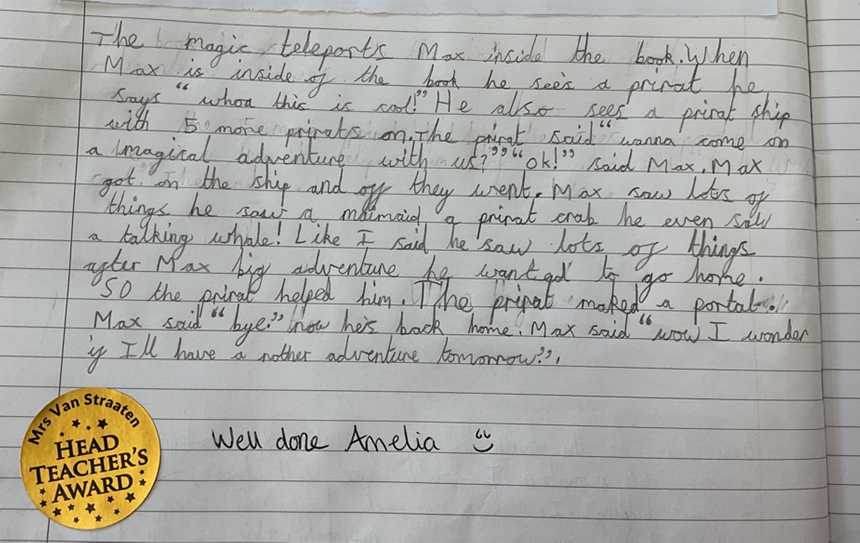 The magic teleports Max inside the book. When
Max is inside of the book he sees a prirat he
says "whoa this is cool!" He also sees a prirat ship
with 5 more prirats on. The prirat said "wanna come on
a magical adventure with us?" "ok!" said Max. Max
got on the ship and off they went. Max saw lots of
things he saw a maimaid a prirat crab he even saw
a talking whale! Like I said he saw lots of things
after Max big adventure he wanted to go home.
SO the prirat helped him. The prirat maked a portal.
Max said "bye." now he's back home. Max said "wow I wonder
if I'll have a nother adventure tomorrow?".
Mrs Van Straaten
HEAD
TEACHER'S
AWARD
Well done Amelia